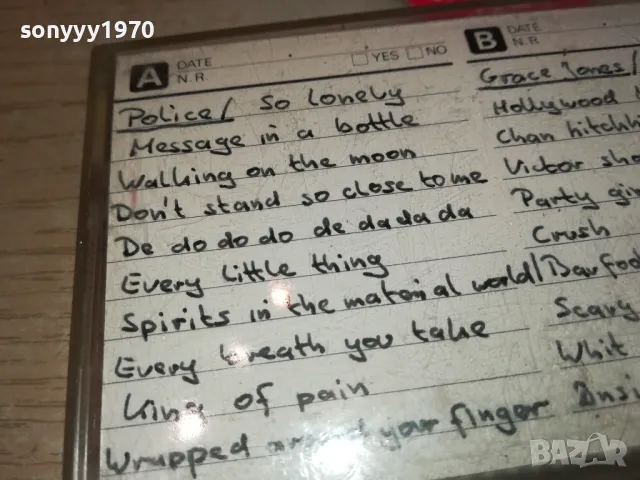 sonyyy1970
A DATE N.R. YES NO
Police/ So lonely
Message in a bottle
Walking on the moon
Don't stand so close to me
De do do do de da da da
Every little thing
Spirits in the material world/
Every breath you take
King of pain
Wrapped around your finger
B DATE N.R.
Grace Jones/
Hollywood
Chan hitchhi
Victor sho
Party gir
Crush
Barfoo
Scary
Whit
Insi
BAZAR